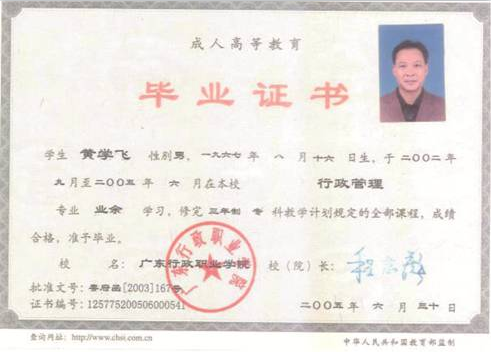 成人高等教育
毕业证书
学生 黄学飞 性别男，一九六七年 八 月十六日生，于二〇〇二年
九月至二〇〇五年 六 月在本校 行政管理
专业 业余 学习，修完 三年制 专 科教学计划规定的全部课程，成绩
合格，准于毕业。
校 名： 广东行政职业学院 校（院）长：
批准文号：粤府函[2003]167号
证书编号：125775200506000541
二〇〇五年 六 月 三十日
查询网址：http://www.chsi.com.cn
中华人民共和国教育部监制
广东行政职业学院